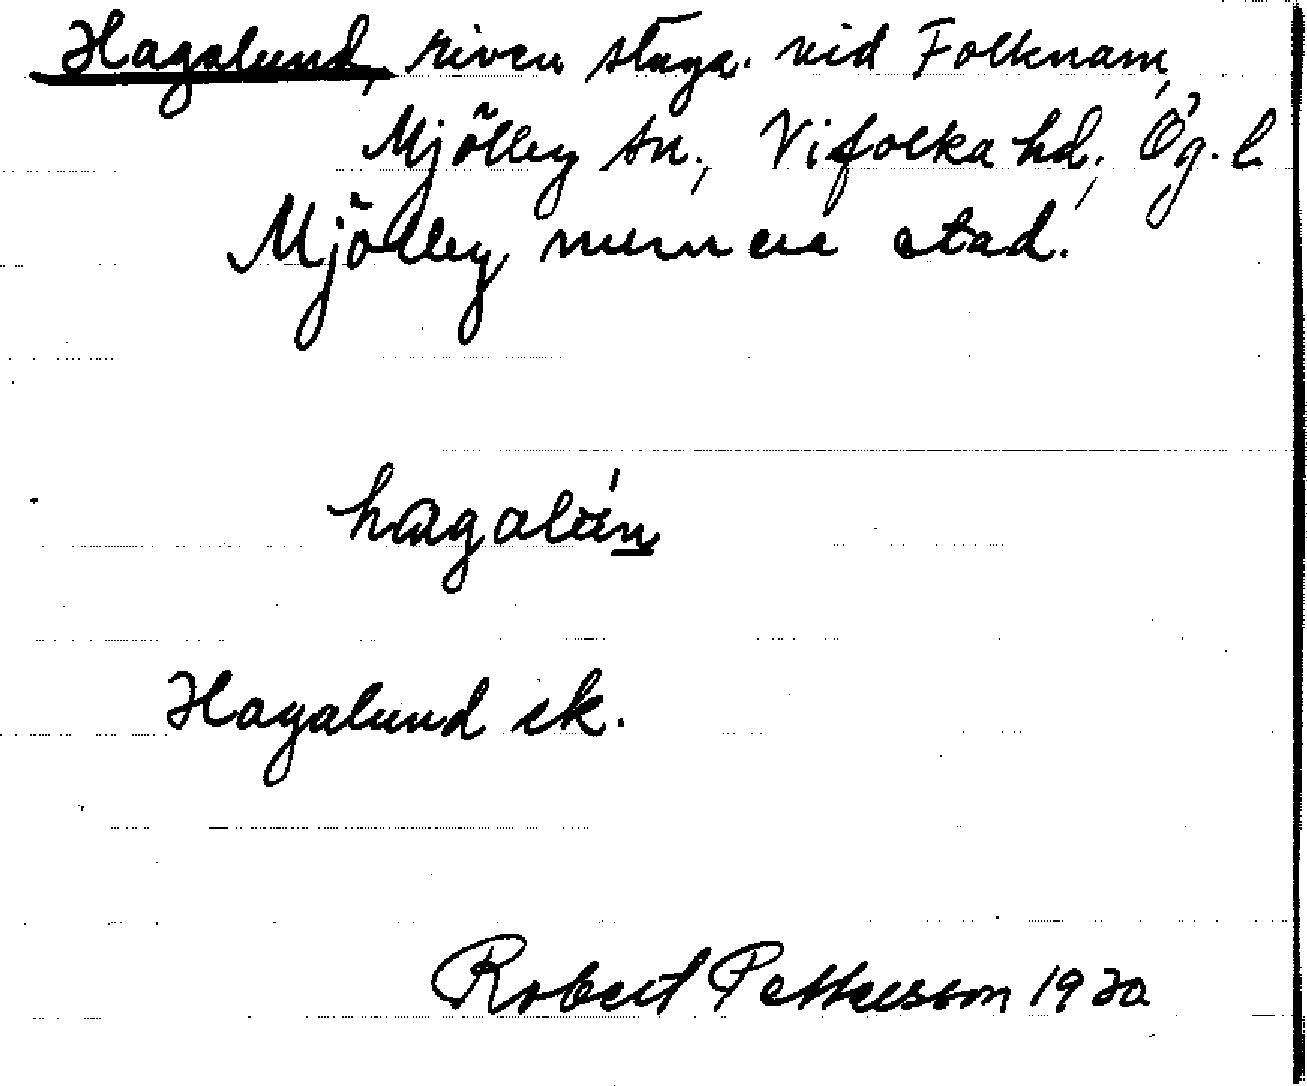 Hagalund, riven stuga. vid Folknam,
Mjölby sn., Vifolka hd., Ög. l.
Mjölby numera stad.
hagalún
Hagalund ek.
Robert Pettersson 1920